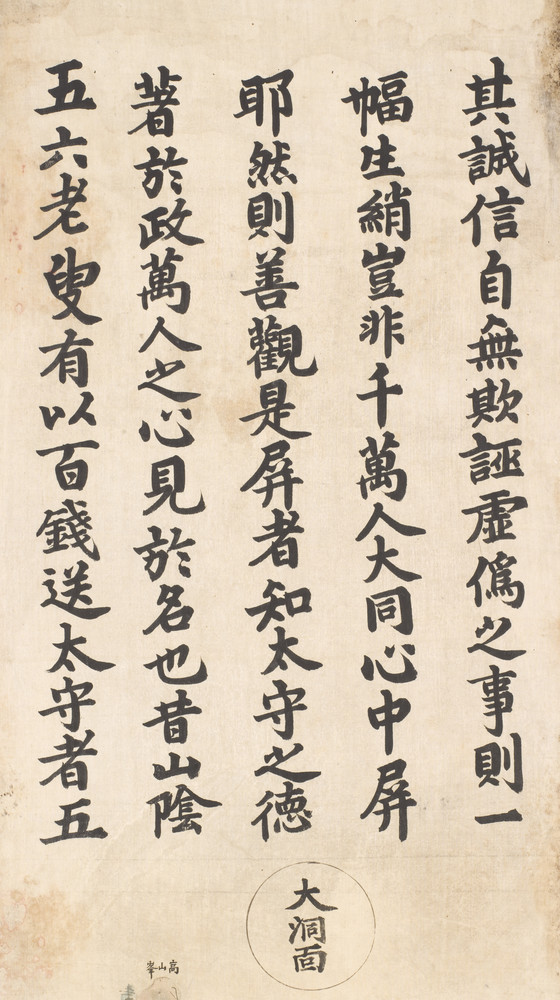 其誠信自無欺誣虛僞之事則一
幅生綃豈非千萬人大同心中屛
耶然則善觀是屛者知太守之德
著於政萬人之心見於名也昔山陰
五六老叟有以百錢送太守者五
大洞面
高山峯